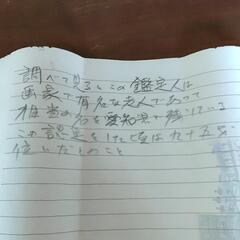 調べて見るとこの鑑定人は
画家で有名な老人であって
相当の名を愛知県で強いている
この認定をした頃は九十五才
位いたとのこと